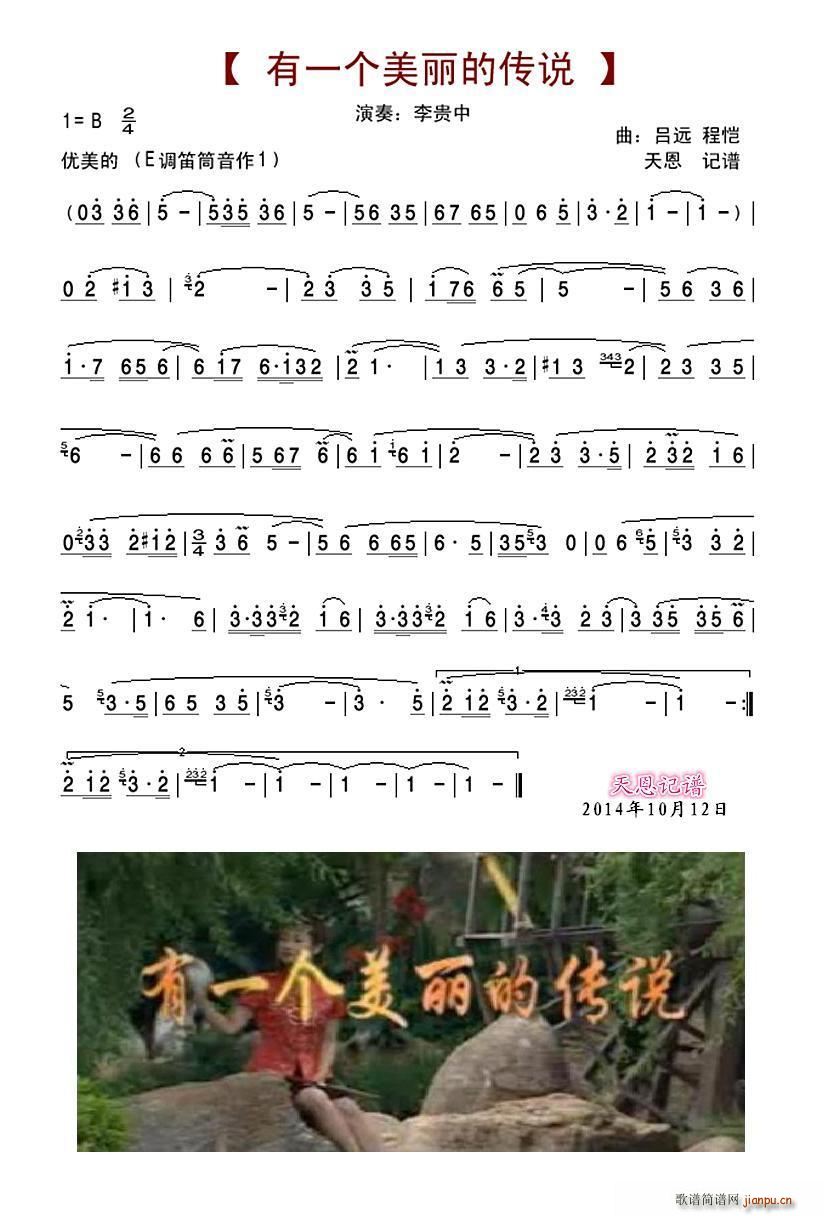 【 有一个美丽的传说 】
1=B 2/4
演奏：李贵中
曲：吕远 程恺
优美的（E调笛筒音作1）
天恩 记谱
(0 3 3 6 | 5 - | 5 3 5 3 6 | 5 - | 5 6 3 5 | 6 7 6 5 | 0 6 5 | 3 · 2 | 1 - | 1 - ) |
0 2 #1 3 | 3 2 - | 2 3 3 5 | 1 7 6 6 5 | 5 - | 5 6 3 6 |
1 · 7 6 5 6 | 6 1 7 6 · 1 3 2 | 2 1 · | 1 3 3 · 2 | #1 3 343 2 | 2 3 3 5 |
5 6 - | 6 6 6 6 | 5 6 7 6 | 6 1 1 6 1 | 2 - | 2 3 3 · 5 | 2 3 2 1 6 |
0 2 3 3 2 #1 2 | 3/4 3 6 5 - | 5 6 6 6 5 | 6 · 5 | 3 5 5 3 0 | 0 6 6 5 | 5 3 3 2 |
2 1 · | 1 · 6 | 3 · 3 3 3 2 1 6 | 3 · 3 3 3 2 1 6 | 3 · 4 3 2 3 | 3 3 5 3 5 6 |
5 5 3 · 5 | 6 5 3 5 | 5 3 - | 3 · 5 | 2 1 2 5 3 · 2 | 232 1 - | 1 - :||
1
2
2 1 2 5 3 · 2 | 232 1 - | 1 - | 1 - | 1 - ||
天恩记谱
2014年10月12日
有一个美丽的传说
歌谱简谱网 jianpu.cn